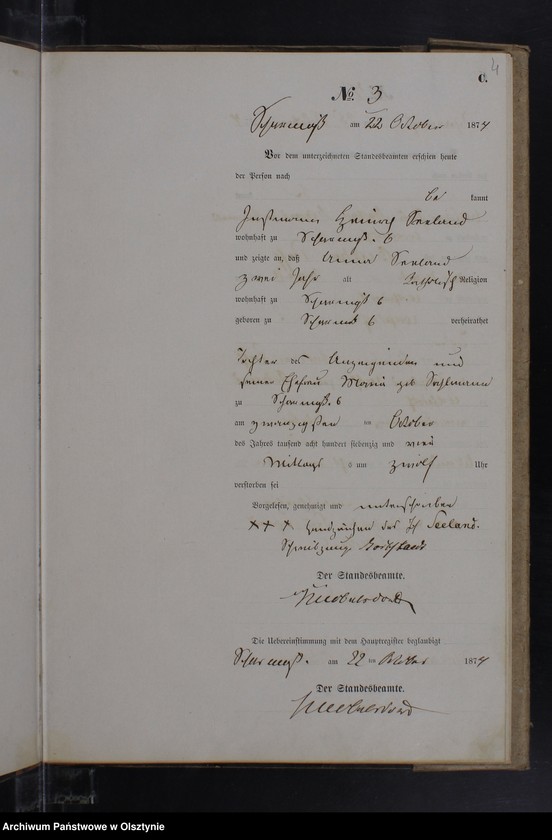 4
C.
№ 3
am 22 October 1874
Vor dem unterzeichneten Standesbeamten erschien heute
der Person nach
be kannt
Heinrich Seeland
wohnhaft zu 6
und zeigte an, daß Anna Seeland
zwei Jahr alt katholisch Religion
wohnhaft zu 6
geboren zu 6 verheirathet
Tochter des Anzeigenden und
seiner Ehefrau Maria geb
zu 6
am zwanzigsten ten October
des Jahres tausend acht hundert siebenzig und vier
Mittags um zwölf Uhr
verstorben sei
Vorgelesen, genehmigt und unterschrieben
××× Handzeichen des Seeland.
Der Standesbeamte.
Die Uebereinstimmung mit dem Hauptregister beglaubigt
am 22 ten October 1874
Der Standesbeamte.
Archiwum Państwowe w Olsztynie